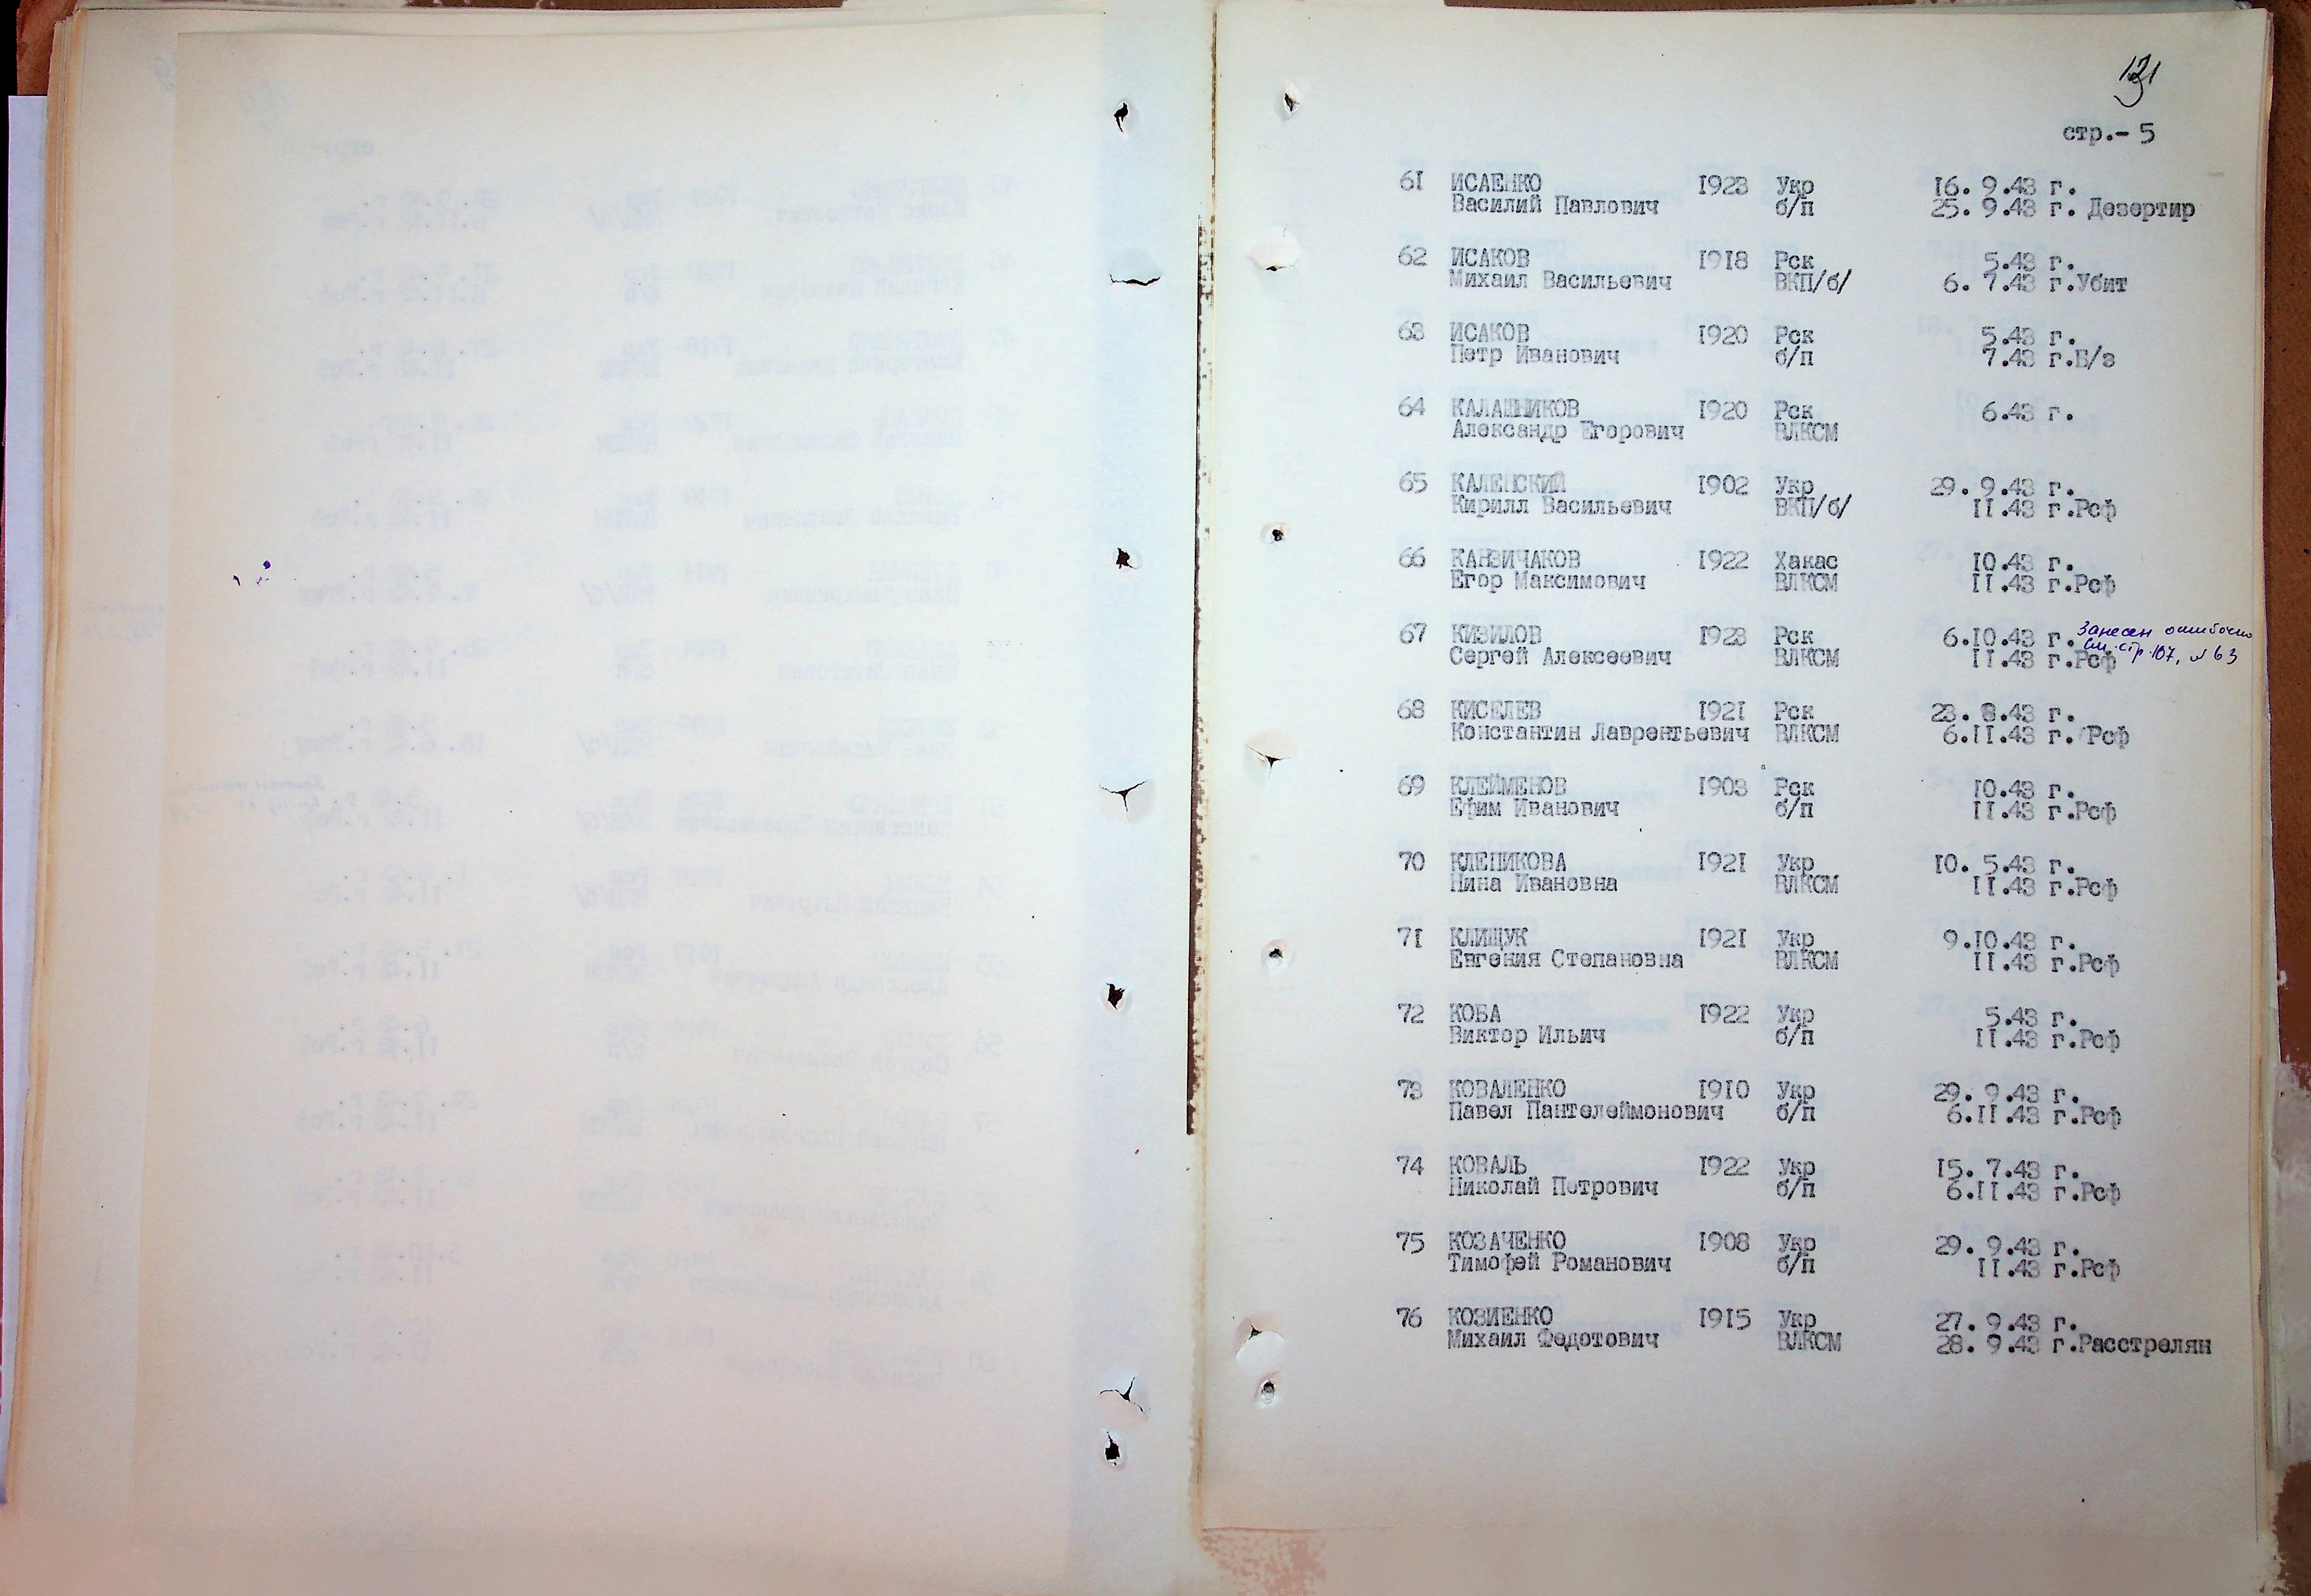 131
стр.- 5
61 ИСАЕНКО 1923 Укр 16. 9.43 г.
Василий Павлович б/п 25. 9.43 г. Дезертир
62 ИСАКОВ 1918 Рск 5.43 г.
Михаил Васильевич ВКП/б/ 6. 7.43 г.Убит
63 ИСАКОВ 1920 Рск 5.43 г.
Петр Иванович б/п 7.43 г.Б/з
64 КАЛАШНИКОВ 1920 Рск 6.43 г.
Александр Егорович ВЛКСМ
65 КАЛЕНСКИЙ 1902 Укр 29. 9.43 г.
Кирилл Васильевич ВКП/б/ 11.43 г.Рсф
66 КАНЗИЧАКОВ 1922 Хакас 10.43 г.
Егор Максимович ВЛКСМ 11.43 г.Рсф
67 КИЗИЛОВ 1923 Рск 6.10.43 г. Занесен ошибочно
Сергей Алексеевич ВЛКСМ 11.43 г.Рсф см. стр. 107, № 63
68 КИСЕЛЕВ 1921 Рск 23. 8.43 г.
Константин Лаврентьевич ВЛКСМ 6.11.43 г. Рсф
69 КЛЕЙМЕНОВ 1903 Рск 10.43 г.
Ефим Иванович б/п 11.43 г.Рсф
70 КЛЕПИКОВА 1921 Укр 10. 5.43 г.
Нина Ивановна ВЛКСМ 11.43 г.Рсф
71 КЛИЩУК 1921 Укр 9.10.43 г.
Евгения Степановна ВЛКСМ 11.43 г.Рсф
72 КОБА 1922 Укр 5.43 г.
Виктор Ильич б/п 11.43 г.Рсф
73 КОВАЛЕНКО 1910 Укр 29. 9.43 г.
Павел Пантелеймонович б/п 6.11.43 г.Рсф
74 КОВАЛЬ 1922 Укр 15. 7.43 г.
Николай Петрович б/п 6.11.43 г.Рсф
75 КОЗАЧЕНКО 1908 Укр 29. 9.43 г.
Тимофей Романович б/п 11.43 г.Рсф
76 КОЗИЕНКО 1915 Укр 27. 9.43 г.
Михаил Федотович ВЛКСМ 28. 9.43 г.Расстрелян